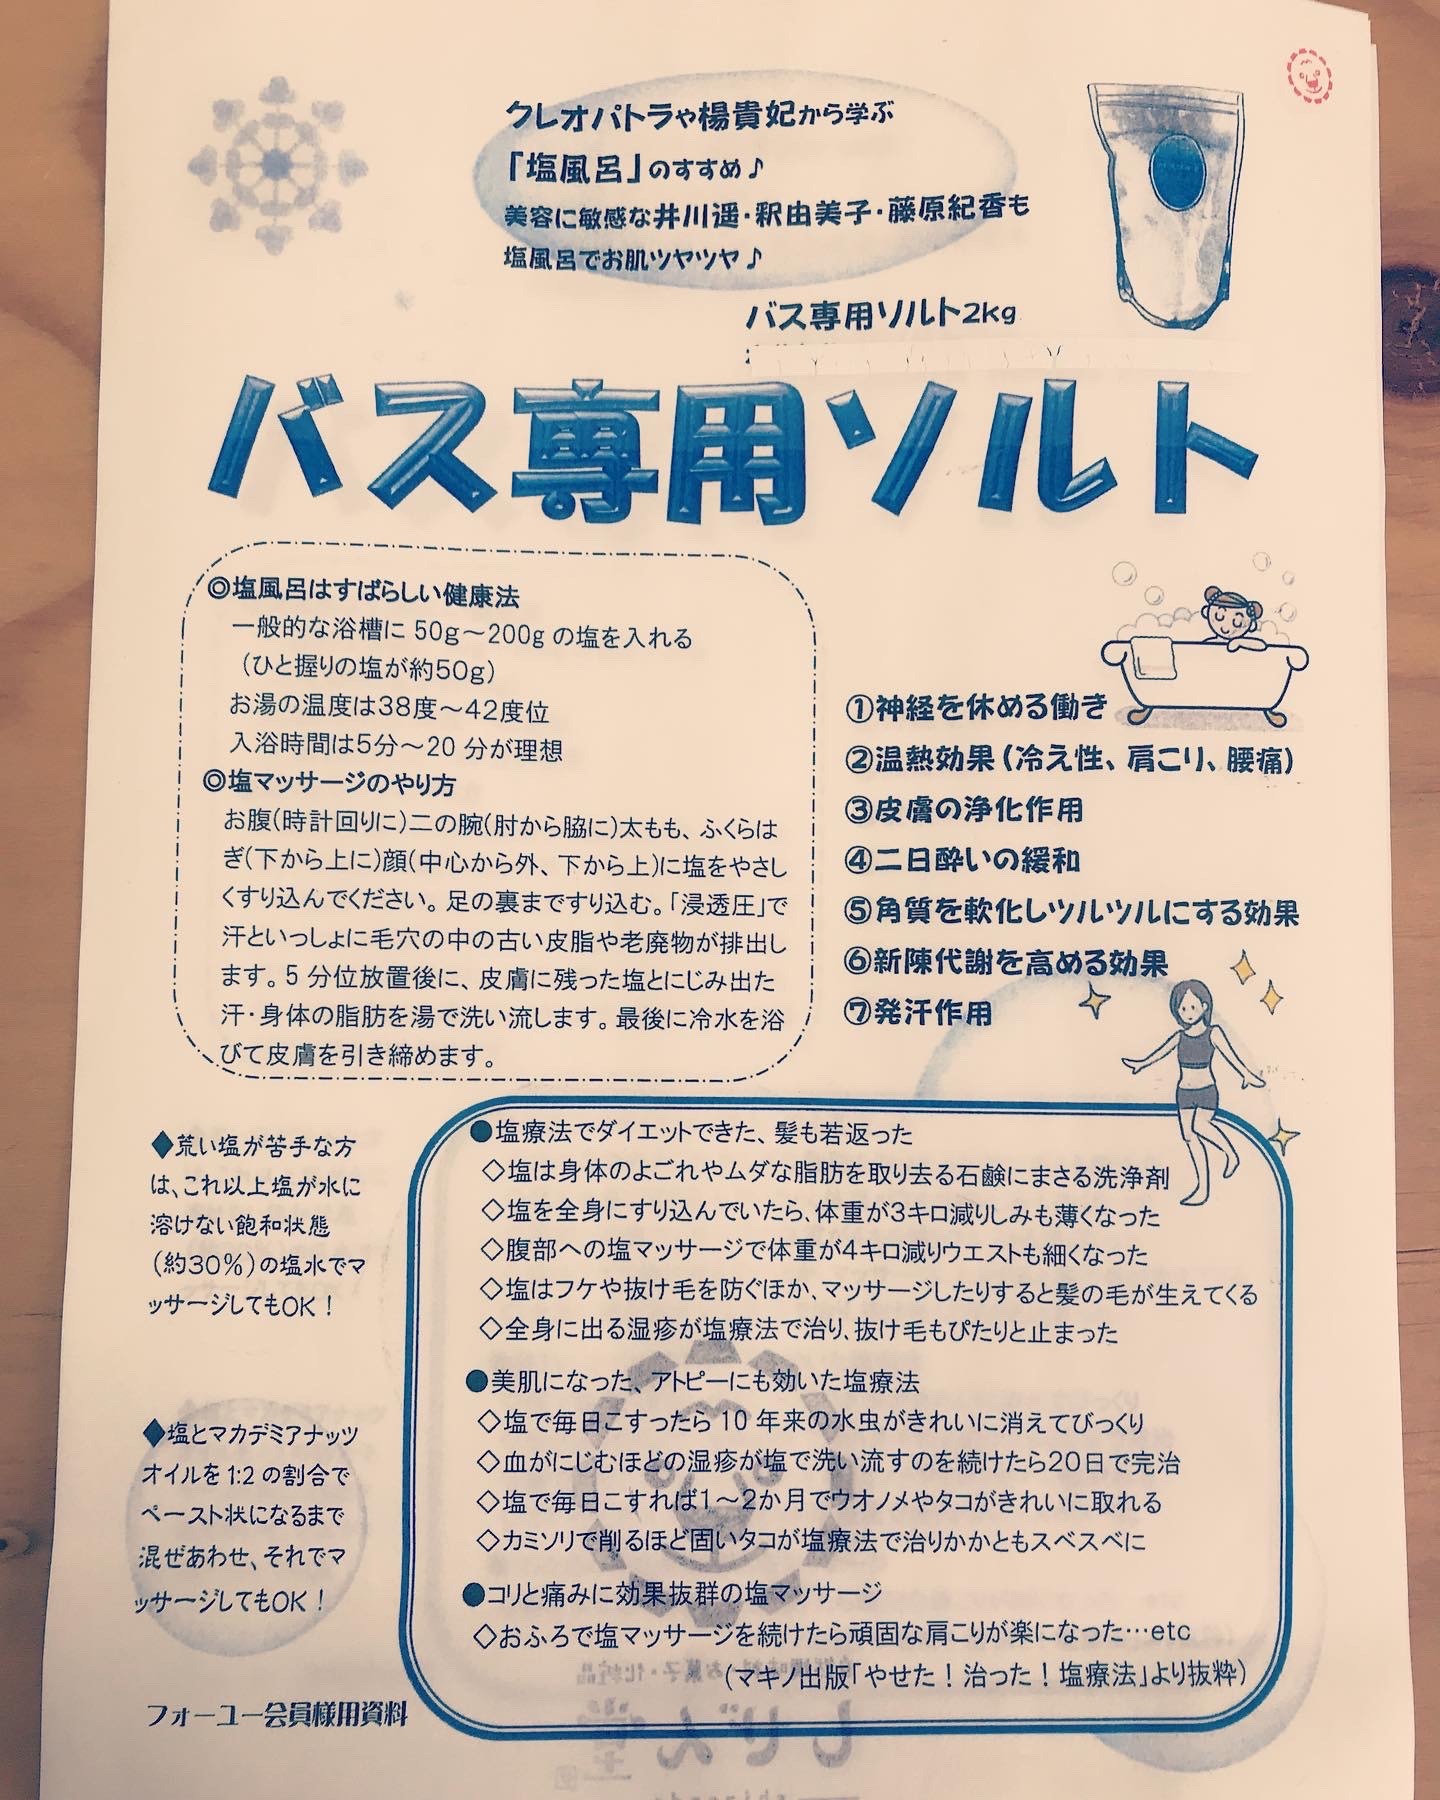 クレオパトラや楊貴妃から学ぶ
「塩風呂」のすすめ♪
美容に敏感な井川遥・釈由美子・藤原紀香も
塩風呂でお肌ツヤツヤ♪
バス専用ソルト2kg
バス専用ソルト
◎塩風呂はすばらしい健康法
一般的な浴槽に 50g～200g の塩を入れる
（ひと握りの塩が約50g）
お湯の温度は38度～42度位
入浴時間は5分～20 分が理想
◎塩マッサージのやり方
お腹（時計回りに）二の腕（肘から脇に）太もも、ふくらは
ぎ（下から上に）顔（中心から外、下から上）に塩をやさし
くすり込んでください。足の裏まですり込む。「浸透圧」で
汗といっしょに毛穴の中の古い皮脂や老廃物が排出し
ます。5 分位放置後に、皮膚に残った塩とにじみ出た
汗・身体の脂肪を湯で洗い流します。最後に冷水を浴
びて皮膚を引き締めます。
①神経を休める働き
②温熱効果（冷え性、肩こり、腰痛）
③皮膚の浄化作用
④二日酔いの緩和
⑤角質を軟化しツルツルにする効果
⑥新陳代謝を高める効果
⑦発汗作用
◆荒い塩が苦手な方
は、これ以上塩が水に
溶けない飽和状態
（約30％）の塩水でマ
ッサージしてもOK！
◆塩とマカデミアナッツ
オイルを 1:2 の割合で
ペースト状になるまで
混ぜあわせ、それでマ
ッサージしてもOK！
●塩療法でダイエットできた、髪も若返った
◇塩は身体のよごれやムダな脂肪を取り去る石鹸にまさる洗浄剤
◇塩を全身にすり込んでいたら、体重が3キロ減りしみも薄くなった
◇腹部への塩マッサージで体重が4キロ減りウエストも細くなった
◇塩はフケや抜け毛を防ぐほか、マッサージしたりすると髪の毛が生えてくる
◇全身に出る湿疹が塩療法で治り、抜け毛もぴたりと止まった
●美肌になった、アトピーにも効いた塩療法
◇塩で毎日こすったら 10 年来の水虫がきれいに消えてびっくり
◇血がにじむほどの湿疹が塩で洗い流すのを続けたら20日で完治
◇塩で毎日こすれば1～2か月でウオノメやタコがきれいに取れる
◇カミソリで削るほど固いタコが塩療法で治りかかともスベスベに
●コリと痛みに効果抜群の塩マッサージ
◇おふろで塩マッサージを続けたら頑固な肩こりが楽になった…etc
（マキノ出版「やせた！治った！塩療法」より抜粋）
フォーユー会員様用資料